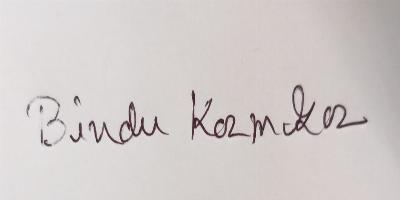 Bindu Karmakar